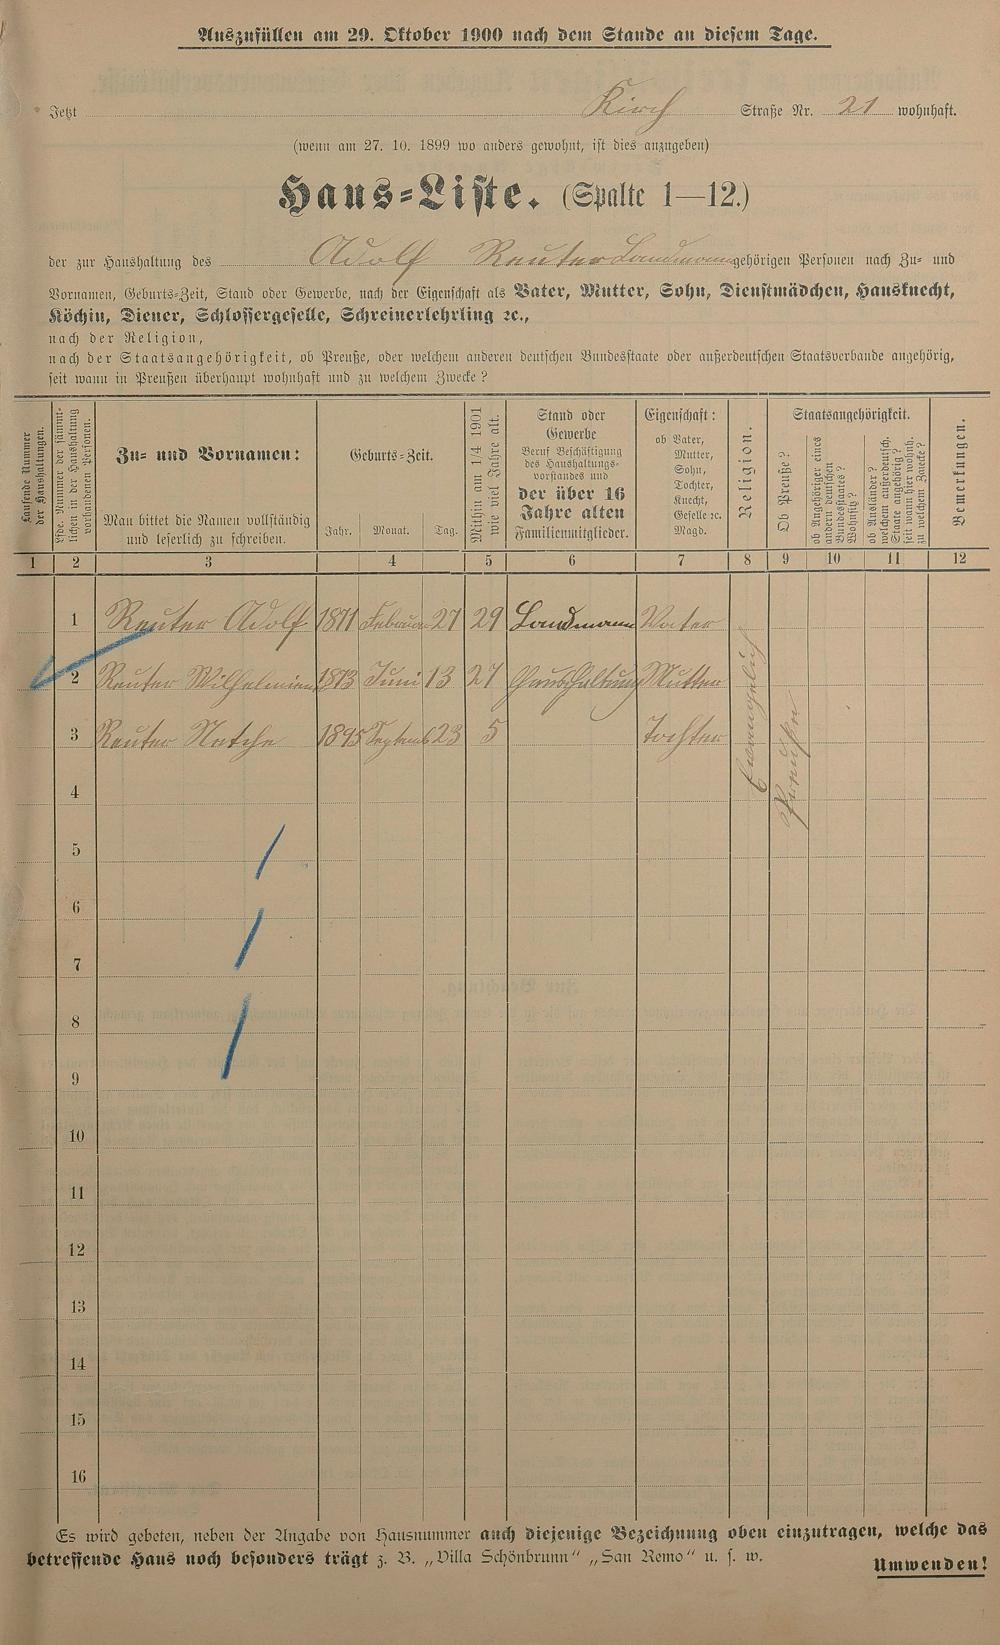 Auszufüllen am 29. Oktober 1900 nach dem Stande an diesem Tage.
Jetzt Kirch Straße Nr. 21 wohnhaft.
(wenn am 27. 10. 1899 wo anders gewohnt, ist dies anzugeben)
Haus-Liste. (Spalte 1—12.)
der zur Haushaltung des Adolf Reuter Landmann gehörigen Personen nach Zu- und
Vornamen, Geburts-Zeit, Stand oder Gewerbe, nach der Eigenschaft als Vater, Mutter, Sohn, Dienstmädchen, Hausknecht,
Köchin, Diener, Schlossergeselle, Schreinerlehrling ꝛc.,
nach der Religion,
nach der Staatsangehörigkeit, ob Preuße, oder welchem anderen deutschen Bundesstaate oder außerdeutschen Staatsverbande angehörig,
seit wann in Preußen überhaupt wohnhaft und zu welchem Zwecke?
Laufende Nummer
der Haushaltungen.
Lfde. Nummer der sämmt-
lichen in der Haushaltung
vorhandenen Personen.
Zu- und Vornamen:
Man bittet die Namen vollständig
und leserlich zu schreiben.
Geburts-Zeit.
Jahr. Monat. Tag.
Mithin am 1/4 1901
wie viel Jahre alt.
Stand oder
Gewerbe
Beruf Beschäftigung
des Haushaltungs-
vorstandes und
der über 16
Jahre alten
Familienmitglieder.
Eigenschaft:
ob Vater,
Mutter,
Sohn,
Tochter,
Knecht,
Geselle ꝛc.
Magd.
Religion.
Staatsangehörigkeit.
Ob Preuße?
ob Angehöriger eines
andern deutschen
Bundesstaates?
Wohnsitz?
ob Ausländer?
welchem außerdeutsch.
Staate angehörig?
seit wann hier wohnh.
zu welchem Zwecke?
Bemerkungen.
1 2 3 4 5 6 7 8 9 10 11 12
1 Reuter Adolf 1871 Februar 27 29 Landmann Vater
2 Reuter Wilhelmien 1873 Juni 13 27 Haushaltung Mutter
3 Reuter 1895 Septemb 23 5 Tochter
Evangelisch
Preußen
4
5
6
7
8
9
10
11
12
13
14
15
16
Es wird gebeten, neben der Angabe von Hausnummer auch diejenige Bezeichnung oben einzutragen, welche das
betreffende Haus noch besonders trägt z. B. „Villa Schönbrunn“ „San Remo“ u. s. w.
Umwenden!